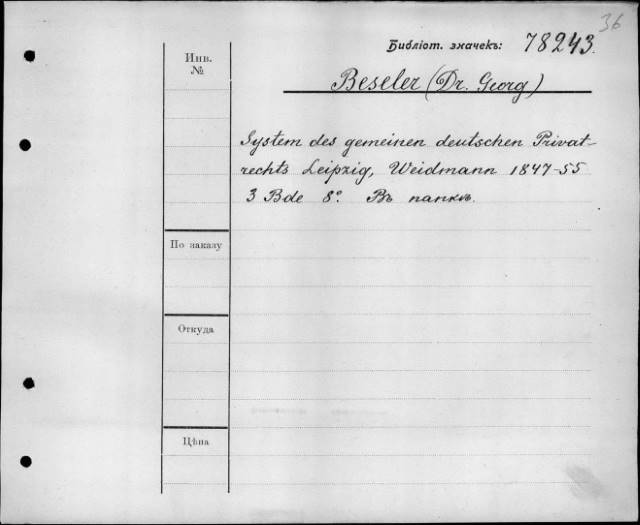 36
Библіот. значекъ: 78243.
Инв.
№
Beseler (Dr. Georg)
System des gemeinen deutschen Privat-
rechts Leipzig, Weidmann 1847-55
3 Bde 8°. Въ папкѣ.
По заказу
Откуда
Цѣна